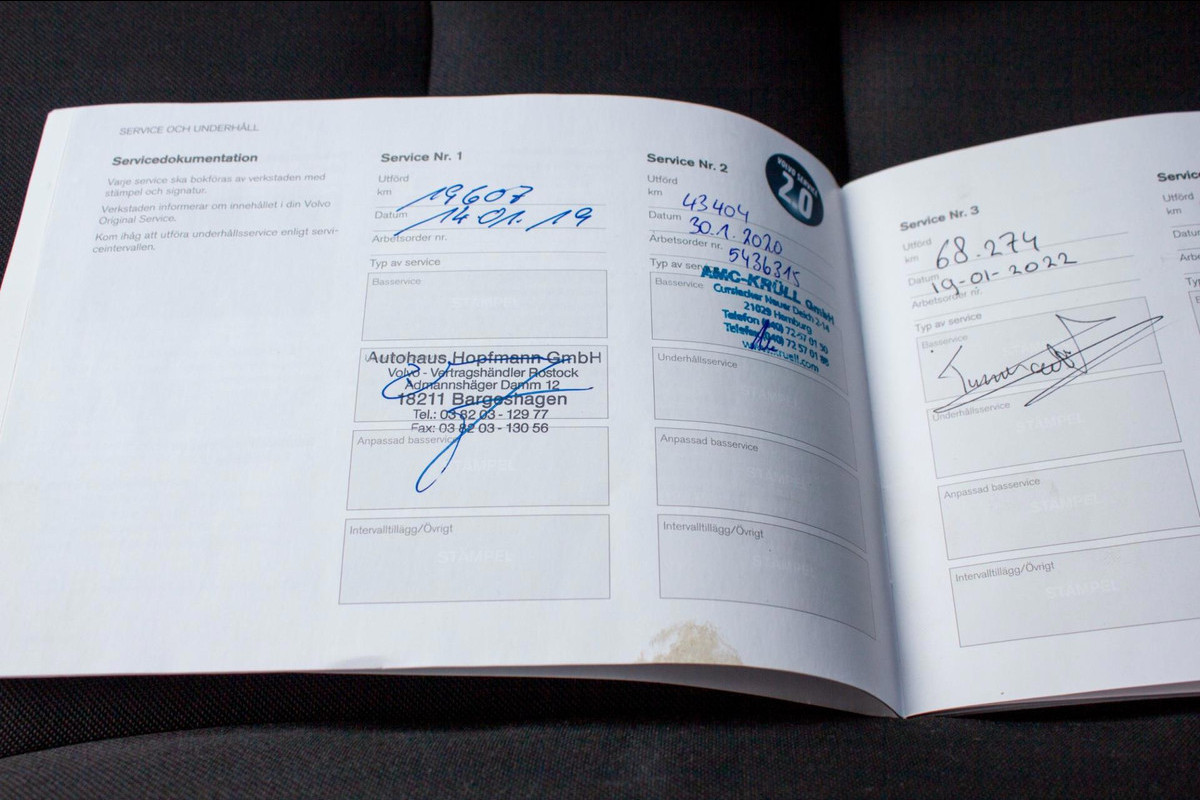 SERVICE OCH UNDERHÅLL
Servicedokumentation
Varje service ska bokföras av verkstaden med
stämpel och signatur.
Verkstaden informerar om innehållet i din Volvo
Original Service.
Kom ihåg att utföra underhållsservice enligt servi-
ceintervallen.
Service Nr. 1
Utförd
km 19607
Datum 14.01.19
Arbetsorder nr.
Typ av service
Basservice
STÄMPEL
Autohaus Hopfmann GmbH
Volvo - Vertragshändler Rostock
Admannshäger Damm 12
18211 Bargeshagen
Tel.: 03 82 03 - 129 77
Fax: 03 82 03 - 130 56
Anpassad basservice
STÄMPEL
Intervalltillägg/Övrigt
STÄMPEL
Service Nr. 2
VOLVO SERVICE
2.0
Utförd
km 43404
Datum 30.1.2020
Arbetsorder nr. 5436315
Typ av ser
Basservice
AMC-KRÜLL GmbH
Curslacker Neuer Deich 2-14
21029 Hamburg
Telefon (040) 72 57 01 50
Telefax (040) 72 57 01 88
Underhållsservice
STÄMPEL
Anpassad basservice
STÄMPEL
Intervalltillägg/Övrigt
STÄMPEL
Service Nr. 3
Utförd
km 68.274
Datum 19-01-2022
Arbetsorder nr.
Typ av service
Basservice
Underhållsservice
STÄMPEL
Anpassad basservice
STÄMPEL
Intervalltillägg/Övrigt
STÄMPEL
Servic
Utförd
km
Datu
Arbe
Ty